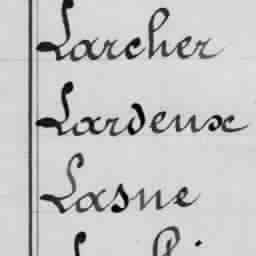 Larcher
Lardeux
Lasne